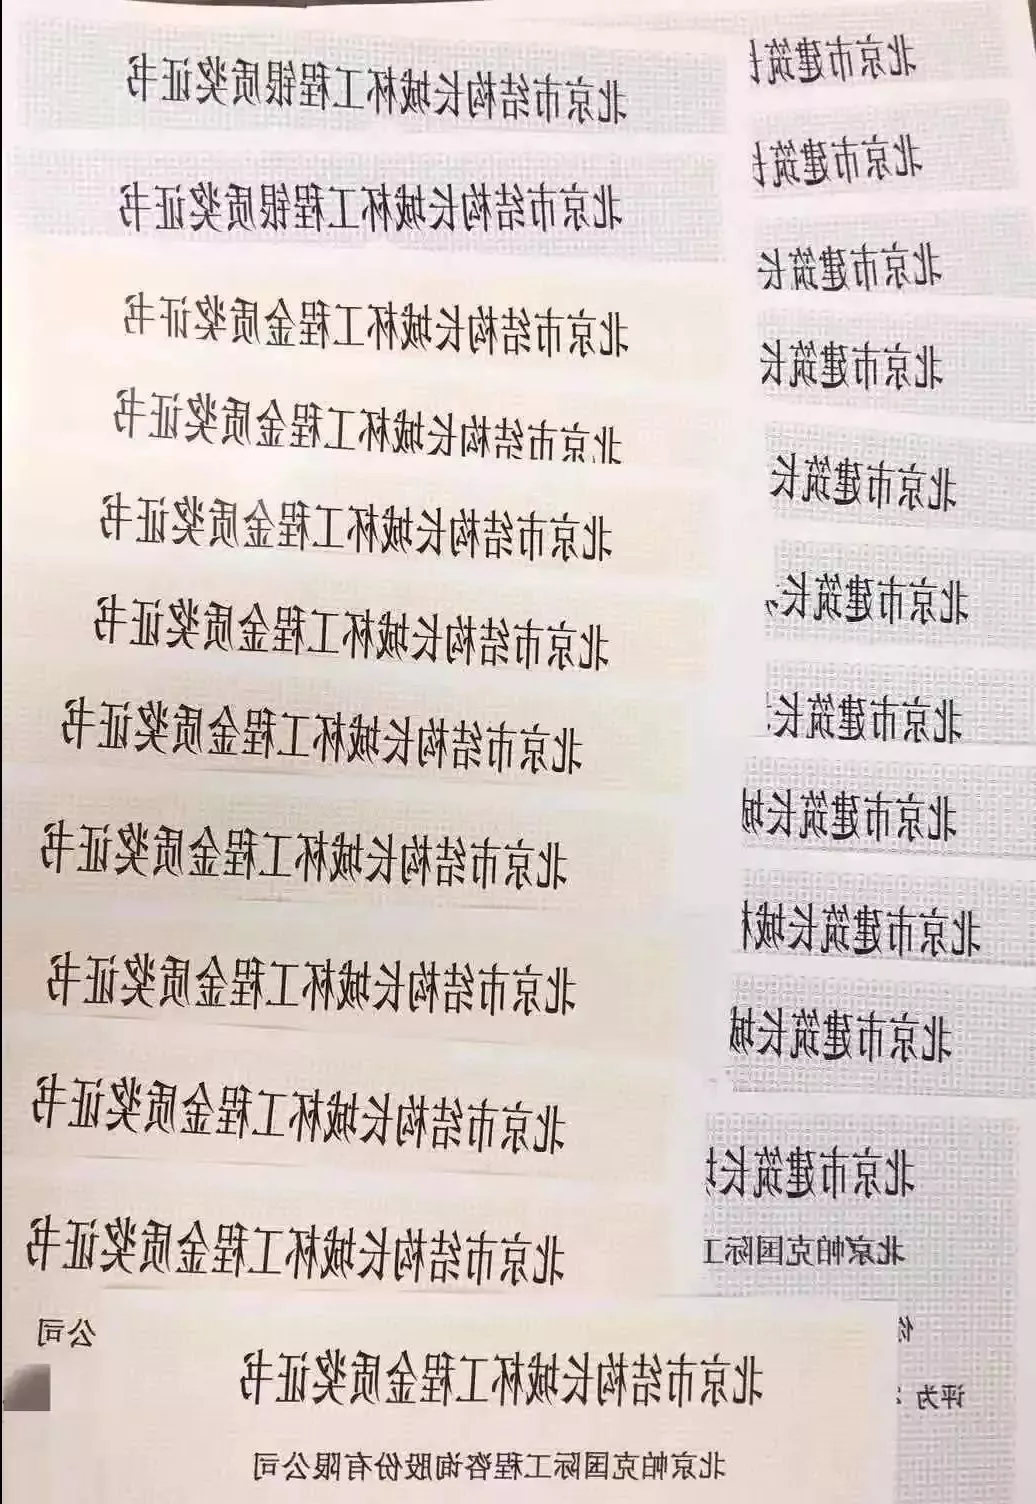 北京市结构长城杯工程银质奖证书
北京市结构长城杯工程银质奖证书
北京市结构长城杯工程金质奖证书
北京市结构长城杯工程金质奖证书
北京市结构长城杯工程金质奖证书
北京市结构长城杯工程金质奖证书
北京市结构长城杯工程金质奖证书
北京市结构长城杯工程金质奖证书
北京市结构长城杯工程金质奖证书
北京市结构长城杯工程金质奖证书
北京市结构长城杯工程金质奖证书
公司
北京市结构长城杯工程金质奖证书
北京帕克国际工程咨询股份有限公司
北京市建筑
北京市建筑
北京市建筑长
北京市建筑长
北京市建筑长
北京市建筑长
北京市建筑长
北京市建筑长城
北京市建筑长城
北京市建筑长城
北京市建筑长
北京帕克国际工
评为